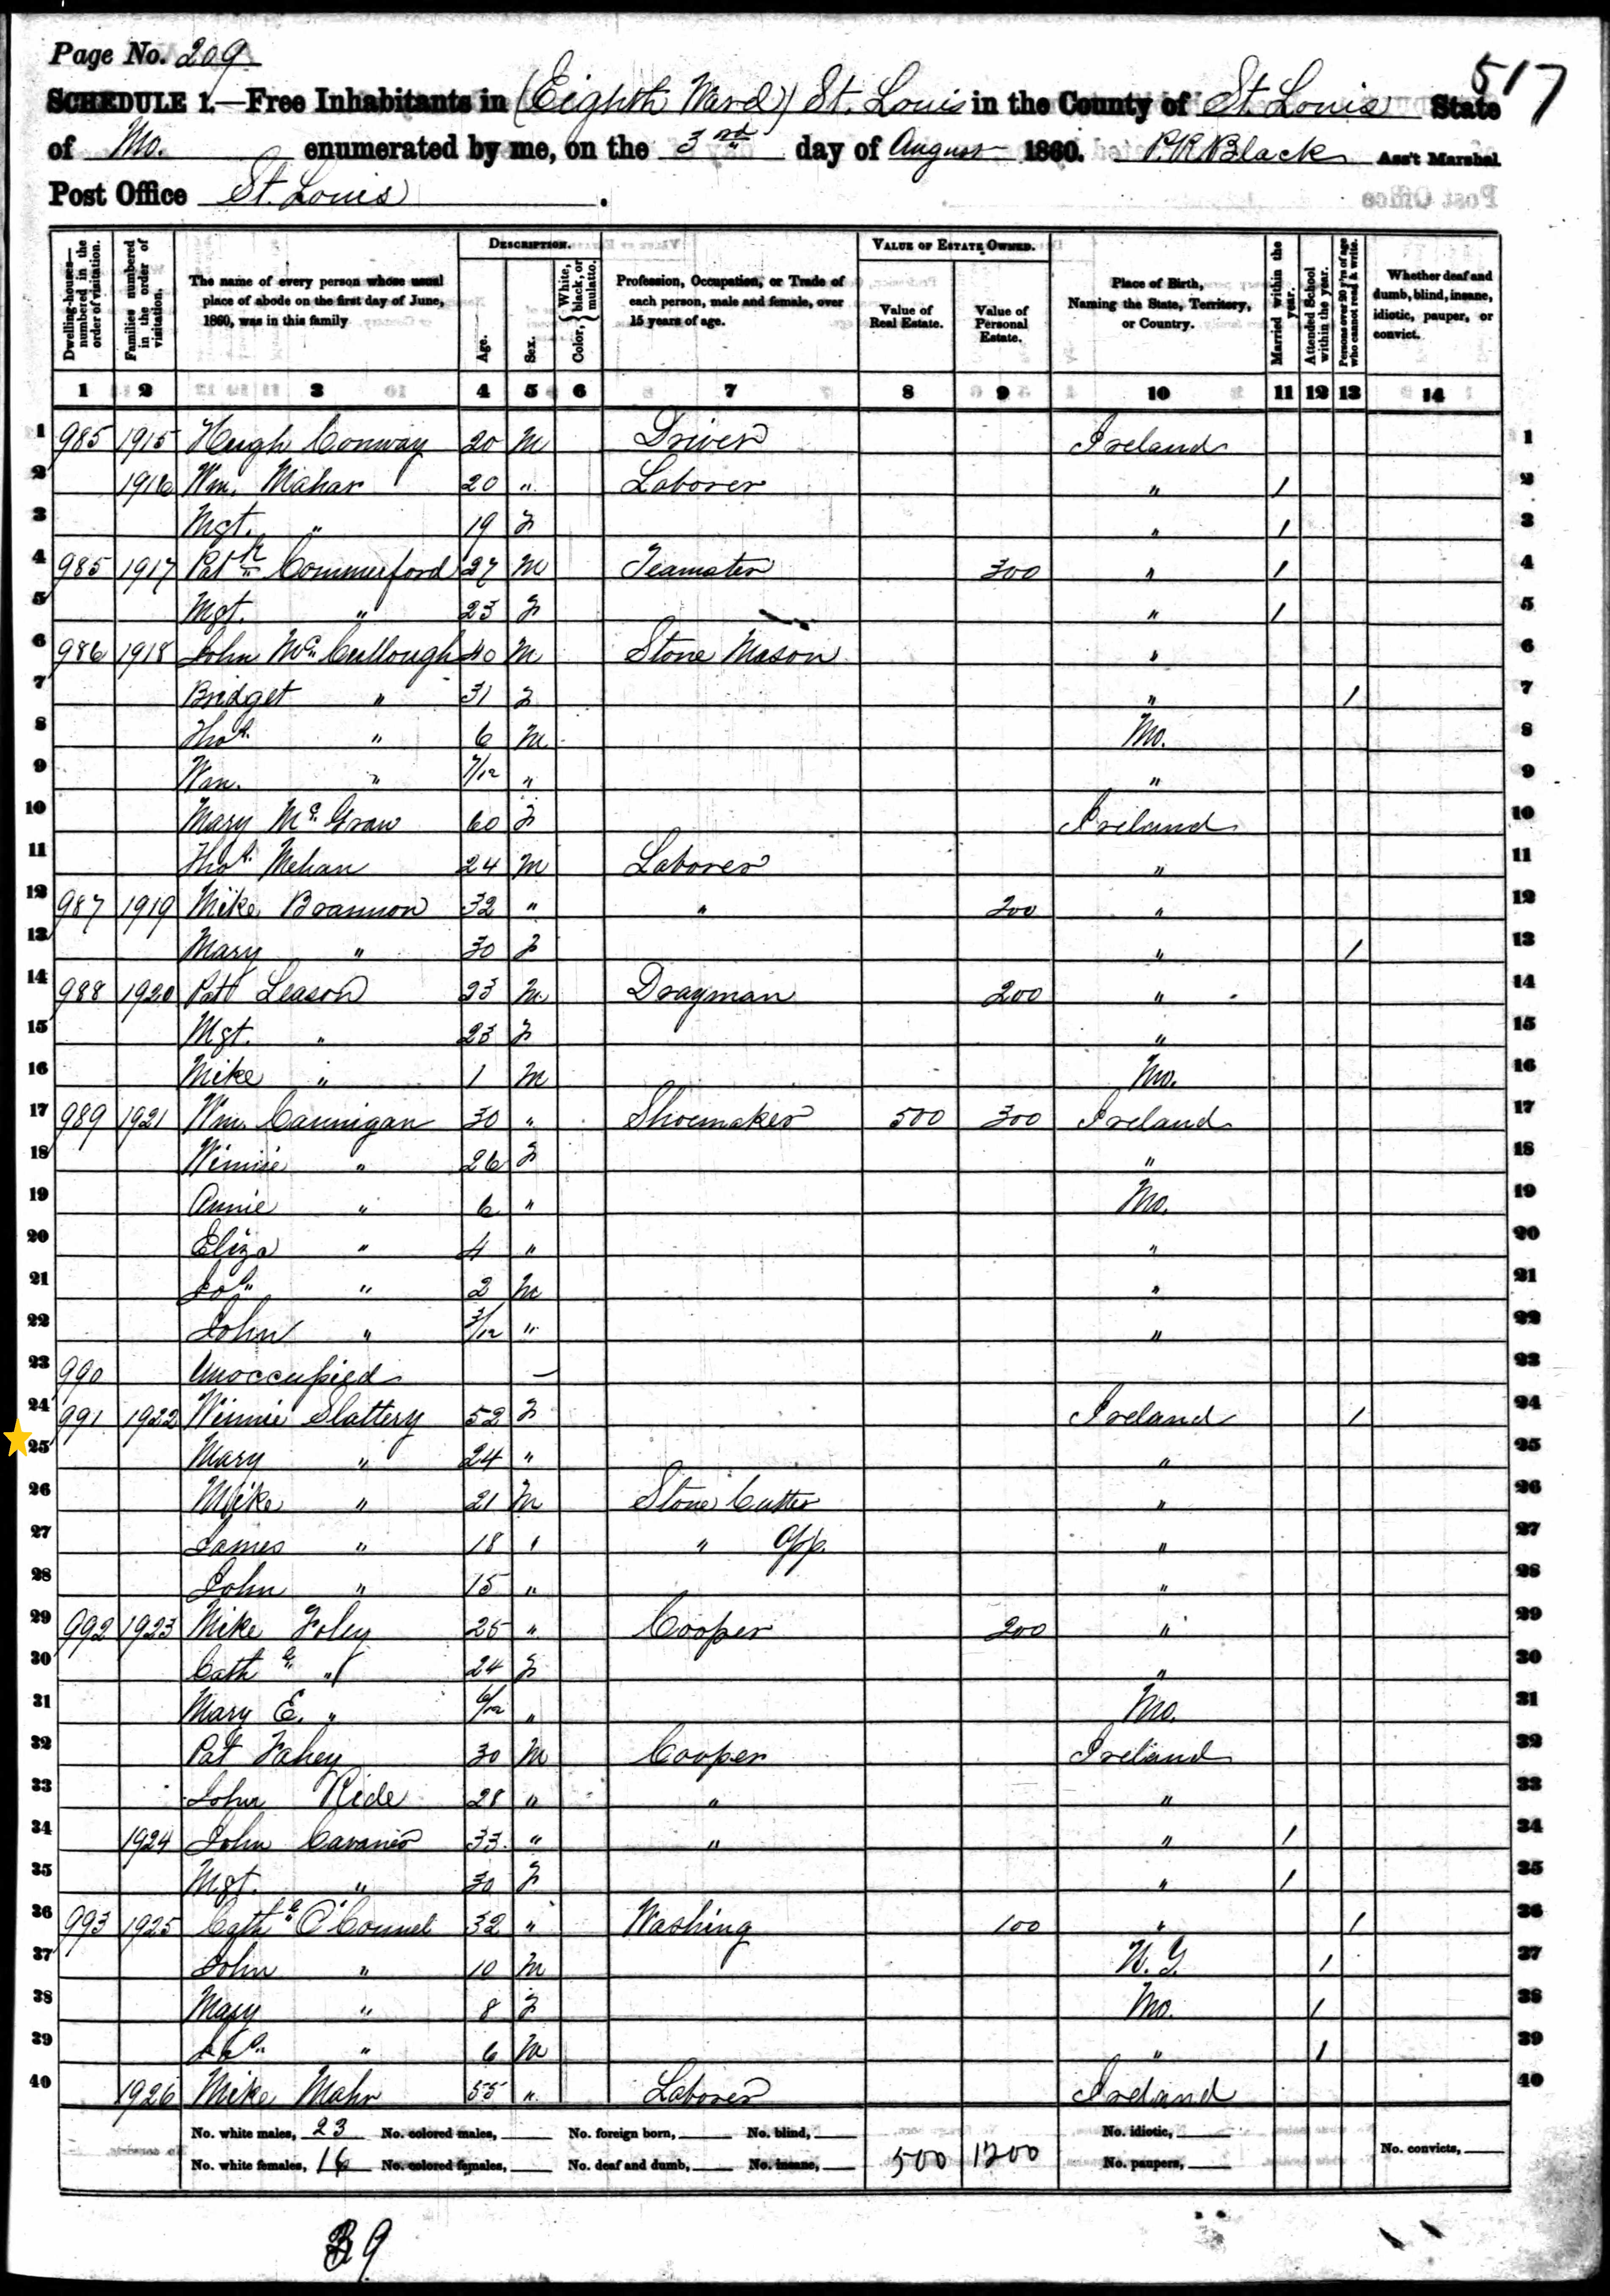 Page No. 209
517
SCHEDULE 1.—Free Inhabitants in (Eighth Ward) St. Louis in the County of St. Louis State
of Mo. enumerated by me, on the 3rd day of August 1860. P.R. Black Ass't Marshal
Post Office St. Louis.
Dwelling-houses—numbered in the order of visitation.
Families numbered in the order of visitation.
The name of every person whose usual place of abode on the first day of June, 1860, was in this family
DESCRIPTION.
Age.
Sex.
Color, { White, black, or mulatto.
Profession, Occupation, or Trade of each person, male and female, over 15 years of age.
VALUE OF ESTATE OWNED.
Value of Real Estate.
Value of Personal Estate.
Place of Birth, Naming the State, Territory, or Country.
Married within the year.
Attended School within the year.
Persons over 20 y'rs of age who cannot read & write.
Whether deaf and dumb, blind, insane, idiotic, pauper, or convict.
1 2 3 4 5 6 7 8 9 10 11 12 13 14
1 985 1915 Hugh Conway 20 M Driver Ireland 1
2 1916 Wm. Mahar 20 " Laborer " / 2
3 Mgt. " 19 F " / 3
4 985 1917 Patk Commerford 27 M Teamster 300 " / 4
5 Mgt. " 23 F " / 5
6 986 1918 John Mc Cullough 40 M Stone Mason " 6
7 Bridget " 31 F " / 7
8 Thos. " 6 M Mo. 8
9 Wm. " 7/12 " " 9
10 Mary Mc Graw 60 F Ireland 10
11 Thos. Mehan 24 M Laborer " 11
12 987 1919 Mike Brannon 32 " " 200 " 12
13 Mary " 30 F " / 13
14 988 1920 Patt Leason 23 M Drayman 200 " 14
15 Mgt. " 23 F " 15
16 Mike " 1 M Mo. 16
17 989 1921 Wm. Cannigan 30 " Shoemaker 500 300 Ireland 17
18 Winnie " 26 F " 18
19 Annie " 6 " Mo. 19
20 Eliza " 4 " " 20
21 Jos. " 2 M " 21
22 John " 3/12 " " 22
23 990 Unoccupied — 23
24 991 1922 Winnie Slattery 52 F Ireland / 24
25 Mary " 24 " " 25
26 Mike " 21 M Stone Cutter " 26
27 James " 18 " " App. " 27
28 John " 15 " " 28
29 992 1923 Mike Foley 25 " Cooper 200 " 29
30 Cathe " 24 F " 30
31 Mary E. " 6/12 " Mo. 31
32 Pat Fahey 30 M Cooper Ireland 32
33 John Ride 28 " " " 33
34 1924 John Cavanio 33 " " " / 34
35 Mgt. " 30 F " / 35
36 993 1925 Cathe O'Connel 32 " Washing 100 " / 36
37 John " 10 M N.Y. / 37
38 Mary " 8 F Mo. / 38
39 " 6 M " / 39
40 1926 Mike Mahr 55 " Laborer Ireland 40
No. white males, 23 No. colored males, No. foreign born, No. blind, No. idiotic,
No. white females, 16 No. colored females, No. deaf and dumb, No. insane, 500 1200 No. paupers, No. convicts,
39